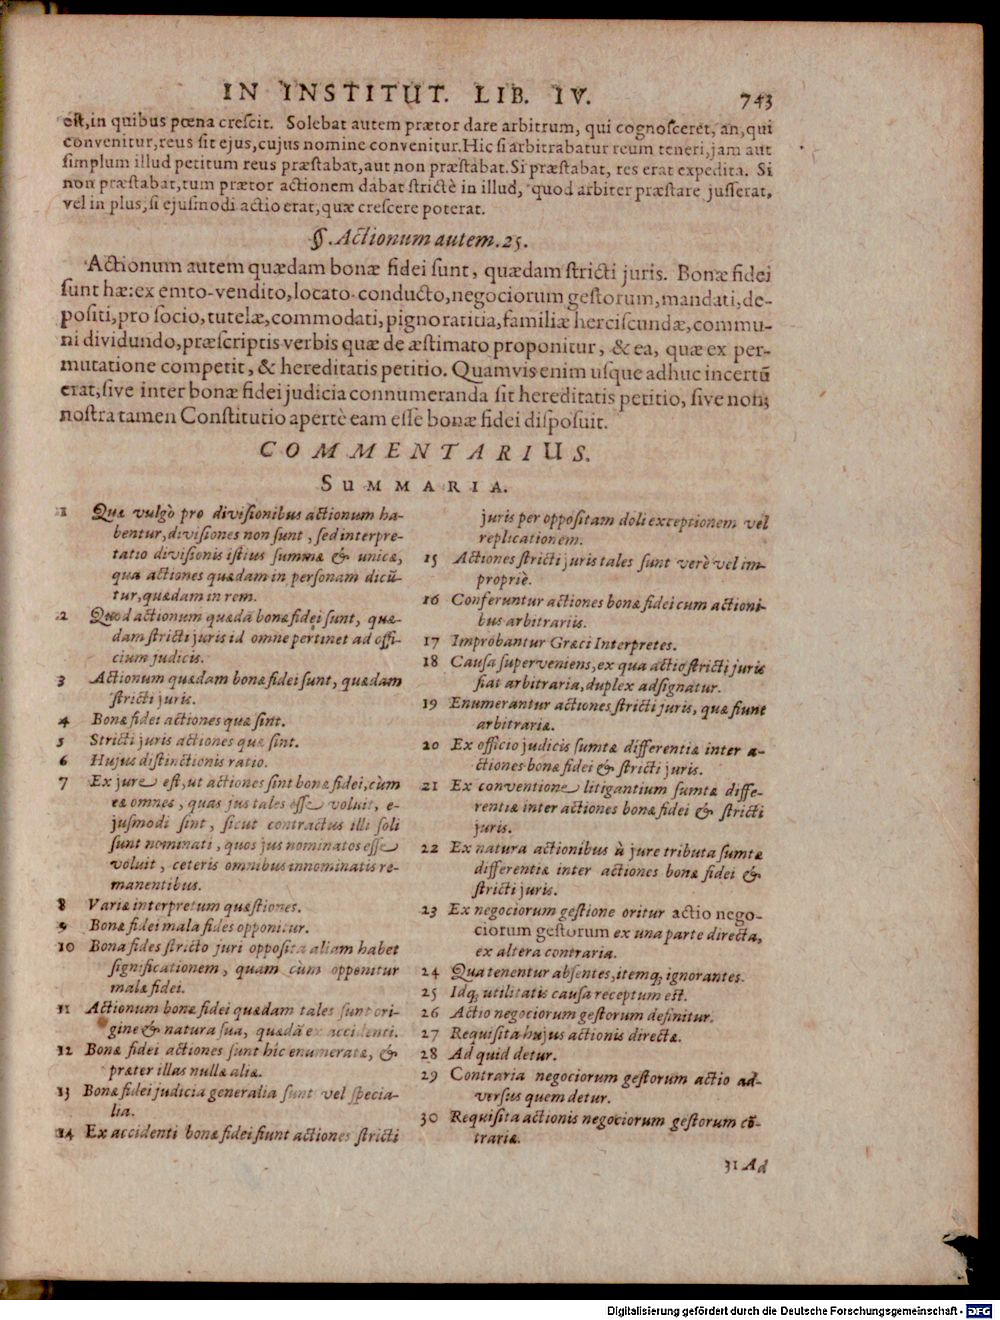 IN INSTITUT. LIB. IV. 743
est, in quibus pœna crescit. Solebat autem prætor dare arbitrum, qui cognosceret, an, qui
convenitur, reus sit ejus, cujus nomine convenitur. Hic si arbitrabatur reum teneri, jam aut
simplum illud petitum reus præstabat, aut non præstabat. Si præstabat, res erat expedita. Si
non præstabat, tum prætor actionem dabat strictè in illud, quod arbiter præstare jusserat,
vel in plus, si ejusmodi actio erat, quæ crescere poterat.
§. Actionum autem. 25.
Actionum autem quædam bonæ fidei sunt, quædam stricti juris. Bonæ fidei
sunt hæ: ex emto-vendito, locato-conducto, negociorum gestorum, mandati, de-
positi, pro socio, tutelæ, commodati, pignoratitia, familiæ herciscundæ, commu-
ni dividundo, præscriptis verbis quæ de æstimato proponitur, & ea, quæ ex per-
mutatione competit, & hereditatis petitio. Quamvis enim usque adhuc incertũ
erat, sive inter bonæ fidei judicia connumeranda sit hereditatis petitio, sive non;
nostra tamen Constitutio apertè eam esse bonæ fidei disposuit.
COMMENTARIUS.
SUMMARIA.
1 Quæ vulgò pro divisionibus actionum ha-
bentur, divisiones non sunt, sed interpre-
tatio divisionis istius summæ & unicæ,
qua actiones quædam in personam dicũ-
tur, quædam in rem.
2 Quod actionum quædã bonæ fidei sunt, quæ-
dam stricti juris id omne pertinet ad offi-
cium judicis.
3 Actionum quædam bonæ fidei sunt, quædam
stricti juris.
4 Bonæ fidei actiones quæ sint.
5 Stricti juris actiones quæ sint.
6 Hujus distinctionis ratio.
7 Ex jure est, ut actiones sint bonæ fidei, cùm
eæ omnes, quas jus tales esse voluit, e-
jusmodi sint, sicut contractus illi soli
sunt nominati, quos jus nominatos esse
voluit, ceteris omnibus innominatis re-
manentibus.
8 Variæ interpretum quæstiones.
9 Bonæ fidei mala fides opponitur.
10 Bona fides stricto juri opposita aliam habet
significationem, quam cùm opponitur
malæ fidei.
11 Actionum bonæ fidei quædam tales sunt ori-
gine & natura sua, quædã ex accidenti.
12 Bonæ fidei actiones sunt hîc enumeratæ, &
præter illas nullæ aliæ.
13 Bonæ fidei judicia generalia sunt vel specia-
lia.
14 Ex accidenti bonæ fidei fiunt actiones stricti
juris per oppositam doli exceptionem vel
replicationem.
15 Actiones stricti juris tales sunt verè vel im-
propriè.
16 Conferuntur actiones bonæ fidei cum actioni-
bus arbitrariis.
17 Improbantur Græci Interpretes.
18 Causa superveniens, ex qua actio stricti juris
fiat arbitraria, duplex adsignatur.
19 Enumerantur actiones stricti juris, quæ fiunt
arbitrariæ.
20 Ex officio judicis sumtæ differentiæ inter a-
ctiones bonæ fidei & stricti juris.
21 Ex conventione litigantium sumtæ diffe-
rentiæ inter actiones bonæ fidei & stricti
juris.
22 Ex natura actionibus à jure tributa sumtæ
differentiæ inter actiones bonæ fidei &
stricti juris.
23 Ex negociorum gestione oritur actio nego-
ciorum gestorum ex una parte directa,
ex altera contraria.
24 Qua tenentur absentes, itemq; ignorantes.
25 Idq; utilitatis causa receptum est.
26 Actio negociorum gestorum definitur.
27 Requisita hujus actionis directæ.
28 Ad quid detur.
29 Contraria negociorum gestorum actio ad-
versus quem detur.
30 Requisita actionis negociorum gestorum cõ-
trariæ.
31 Ad
Digitalisierung gefördert durch die Deutsche Forschungsgemeinschaft - DFG